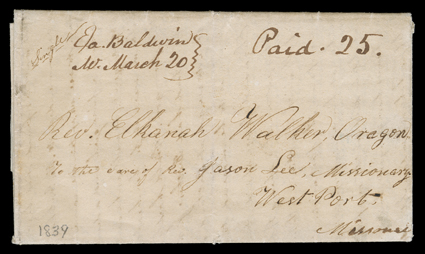 Single
Ea. Baldwin
Me. March 20
Paid. 25.
Rev. Elkanah Walker, Oregon.
To the care of Rev. Jason Lee, Missionary
West Port.
Missouri
1839